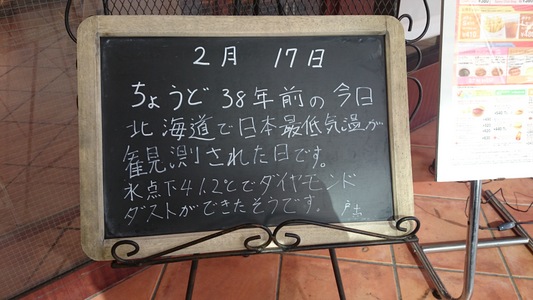 2月 17日
ちょうど 38年前の今日
北海道で日本最低気温が
観測された日です。
氷点下41.2℃でダイヤモンド
ダストができたそうです。